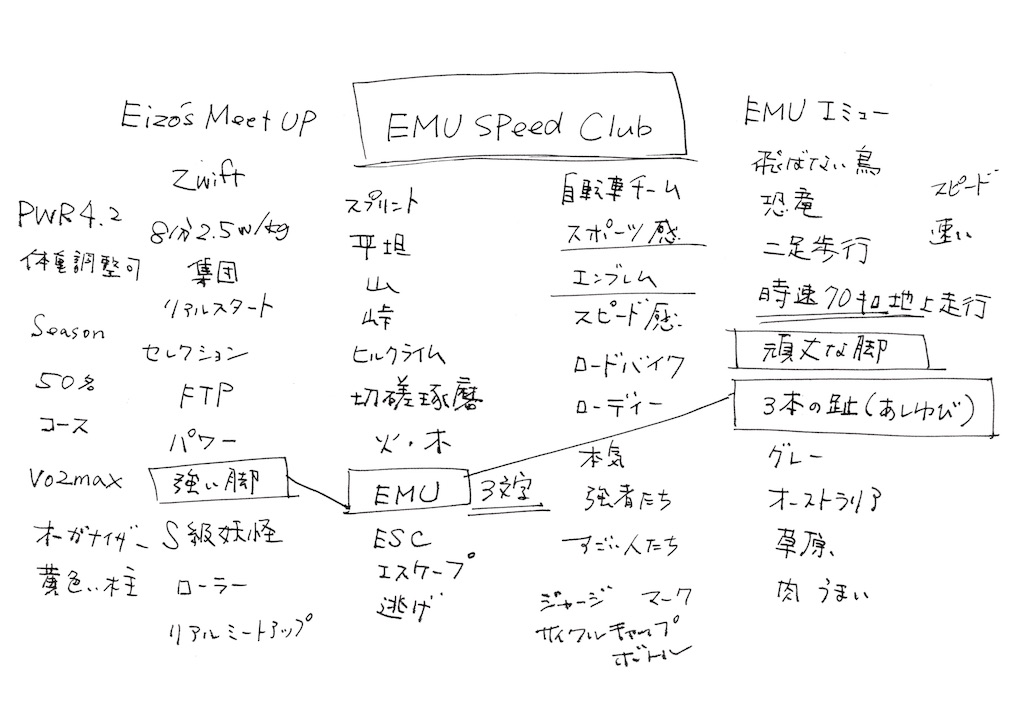 Eizo's Meet UP
Zwift
PWR4.2
8分2.5w/kg
体重調整可
集団
リアルスタート
Season
セレクション
50名
FTP
コース
パワー
VO2max
強い脚
オーガナイザー
S級妖怪
黄色い柱
ローラー
リアルミートアップ
EMU SPeed Club
スプリント
平坦
山
峠
ヒルクライム
切磋琢磨
火・木
EMU
3文字
ESC
エスケープ
逃げ
自転車チーム
スポーツ感
エンブレム
スピード感
ロードバイク
ローディー
本気
強者たち
すごい人たち
ジャージ マーク
サイクルキャップ
ボトル
EMU エミュー
飛ばない鳥
スピード
恐竜
速い
二足歩行
時速70キロ地上走行
頑丈な脚
3本の趾(あしゆび)
グレー
オーストラリア
草原
肉 うまい